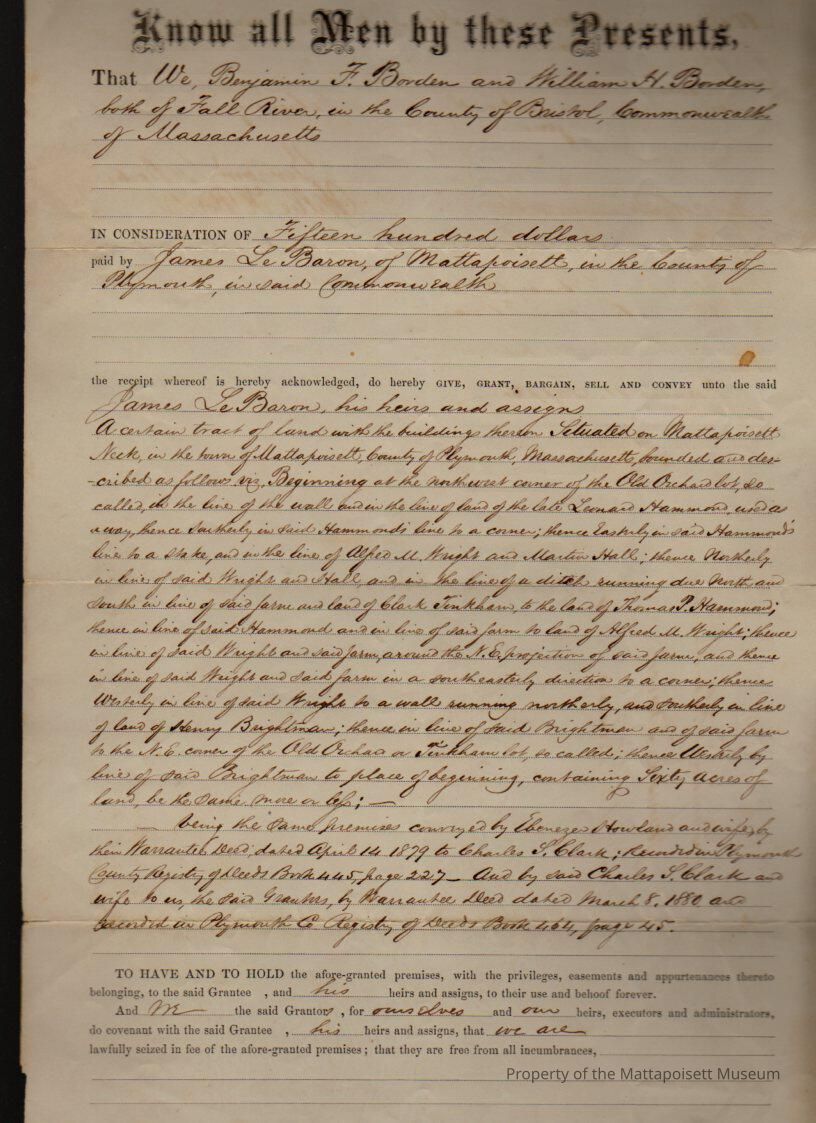 Know all Men by these Presents,
That We, Benjamin F. Borden and William H. Borden,
both of Fall River, in the County of Bristol, Commonwealth
of Massachusetts
IN CONSIDERATION OF Fifteen hundred dollars
paid by James Le Baron, of Mattapoisett, in the County of
Plymouth, in said Commonwealth
the receipt whereof is hereby acknowledged, do hereby GIVE, GRANT, BARGAIN, SELL AND CONVEY unto the said
James Le Baron, his heirs and assigns
A certain tract of land with the buildings thereon Situated on Mattapoisett
Neck, in the town of Mattapoisett, County of Plymouth, Massachusetts, bounded and des-
-cribed as follows viz, Beginning at the northwest corner of the Old Orchard lot, so
called, in the line of the wall and in the line of land of the late Leonard Hammond, used as
a way, thence Southerly in said Hammond's line to a corner; thence Easterly in said Hammond's
line to a stake, and in the line of Alfred M. Wright and Martin Hall; thence Northerly
in line of said Wright and Hall, and in the line of a ditch running due North and
South in line of said farm and land of Clark Tinkham, to the land of Thomas P. Hammond;
thence in line of said Hammond and in line of said farm to land of Alfred M. Wright; thence
in line of said Wright and said farm, around the N.E. projection of said farm, and thence
in line of said Wright and said farm in a southeasterly direction to a corner; thence
Westerly in line of said Wright to a wall running northerly, and Southerly in line
of land of Henry Brightman; thence in line of said Brightman and of said farm
to the N.E. corner of the Old Orchard or Tinkham lot, so called; thence Westerly by
line of said Brightman to place of beginning, containing Sixty Acres of
land, be the same more or less; —
— being the same premises conveyed by Ebenezer Howland and wife, by
their Warrantee Deed, dated April 14 1879 to Charles S. Clark; Recorded in Plymouth
County Registry of Deeds Book 445, page 227 — And by said Charles S. Clark and
wife to us, the said Grantors, by Warrantee Deed dated March 8, 1880 and
recorded in Plymouth Co Registry of Deeds Book 464, page 45.
TO HAVE AND TO HOLD the afore-granted premises, with the privileges, easements and appurtenances thereto
belonging, to the said Grantee , and his heirs and assigns, to their use and behoof forever.
And We the said Grantors , for ourselves and our heirs, executors and administrators,
do covenant with the said Grantee , his heirs and assigns, that we are
lawfully seized in fee of the afore-granted premises; that they are free from all incumbrances,
Property of the Mattapoisett Museum